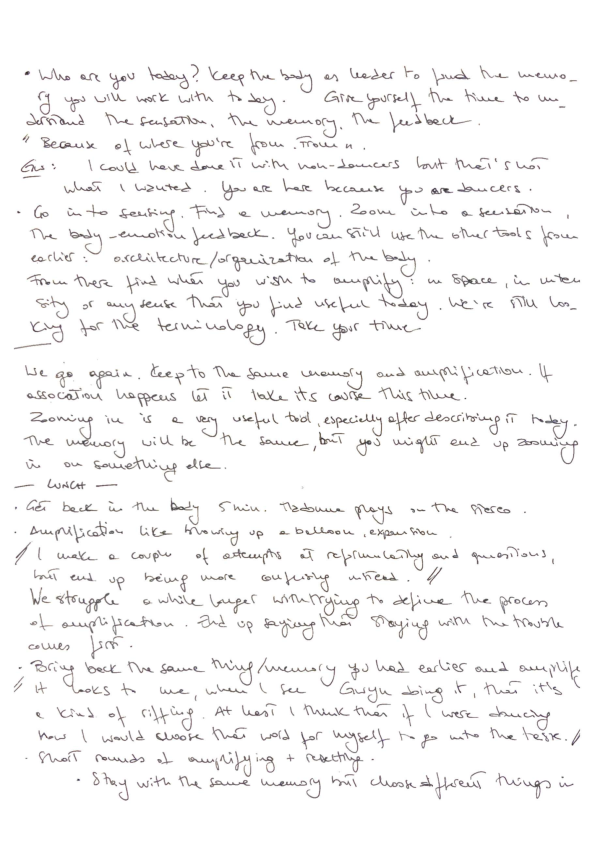 • Who are you today? Keep the body as leader to find the memo-
ry you will work with today. Give yourself the time to un-
derstand the sensation, the memory, the feedback.
" Because of where you're from. From "
I could have done it with non-dancers but that's not
what I wanted. You are here because you are dancers.
• Go into sensing. Find a memory. Zoom into a sensation,
the body-emotion feedback. You can still use the other tools from
earlier: architecture/organization of the body.
From there find what you wish to amplify: in space, in inten
sity or any sense that you find useful today. We're still loo-
king for the terminology. Take your time
We go again. Keep to the same memory and amplification. If
assocation happens let it take its course this time.
Zooming in is a very useful tool, especially after describing it today.
The memory will be the same, but you might end up zooming
in on something else.
— LUNCH —
• Get back in the body 5 min. Madonna plays on the stereo.
• Amplification like blowing up a balloon, expansion.
// I make a couple of attempts at reformulating and questions,
but end up being more confusing instead. //
We struggle a while longer with trying to define the process
of amplification. End up saying that staying with the trouble
comes first.
• Bring back the same thing/memory you had earlier and amplify
// It looks to me, when I see Gwyn doing it, that it's
a kind of riffing. At least I think that if I were dancing
now I would choose that word for myself to go into the task. //
• Short rounds of amplifying + resetting.
• Stay with the same memory but choose different things in